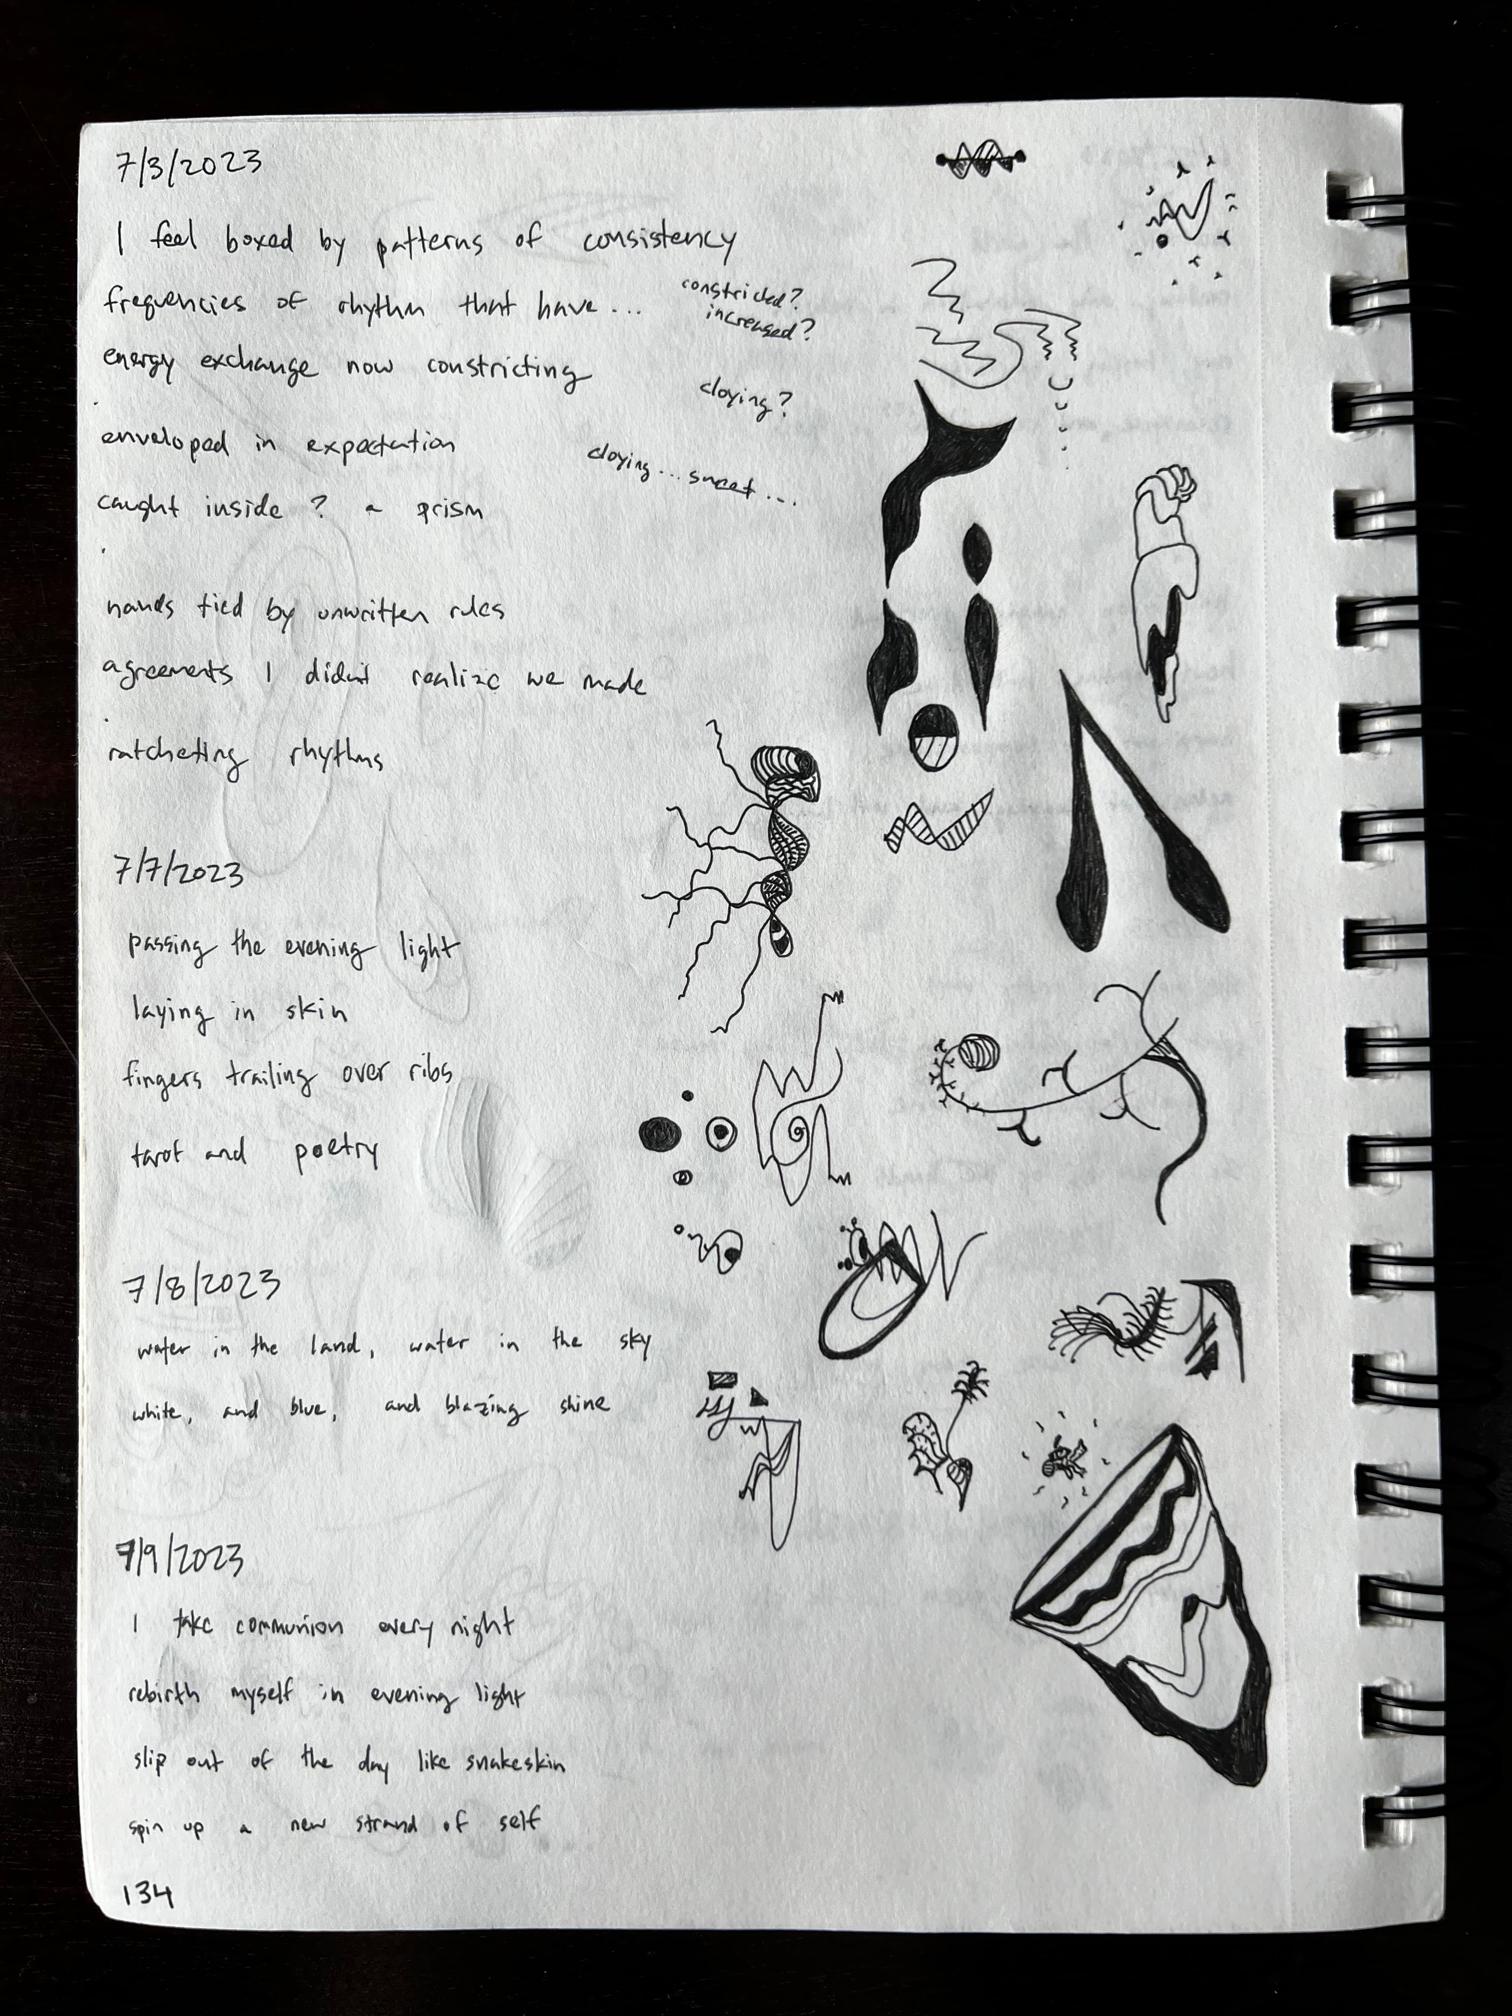 7/3/2023
I feel boxed by patterns of consistency
frequencies of rhythm that have...
constricted?
increased?
energy exchange now constricting
cloying?
enveloped in expectation
cloying... sweet...
caught inside? a prism
hands tied by unwritten rules
agreements I didn't realize we made
ratcheting rhythms
7/7/2023
passing the evening light
laying in skin
fingers trailing over ribs
tarot and poetry
7/8/2023
water in the land, water in the sky
white, and blue, and blazing shine
7/9/2023
I take communion every night
rebirth myself in evening light
slip out of the day like snakeskin
spin up a new strand of self
134